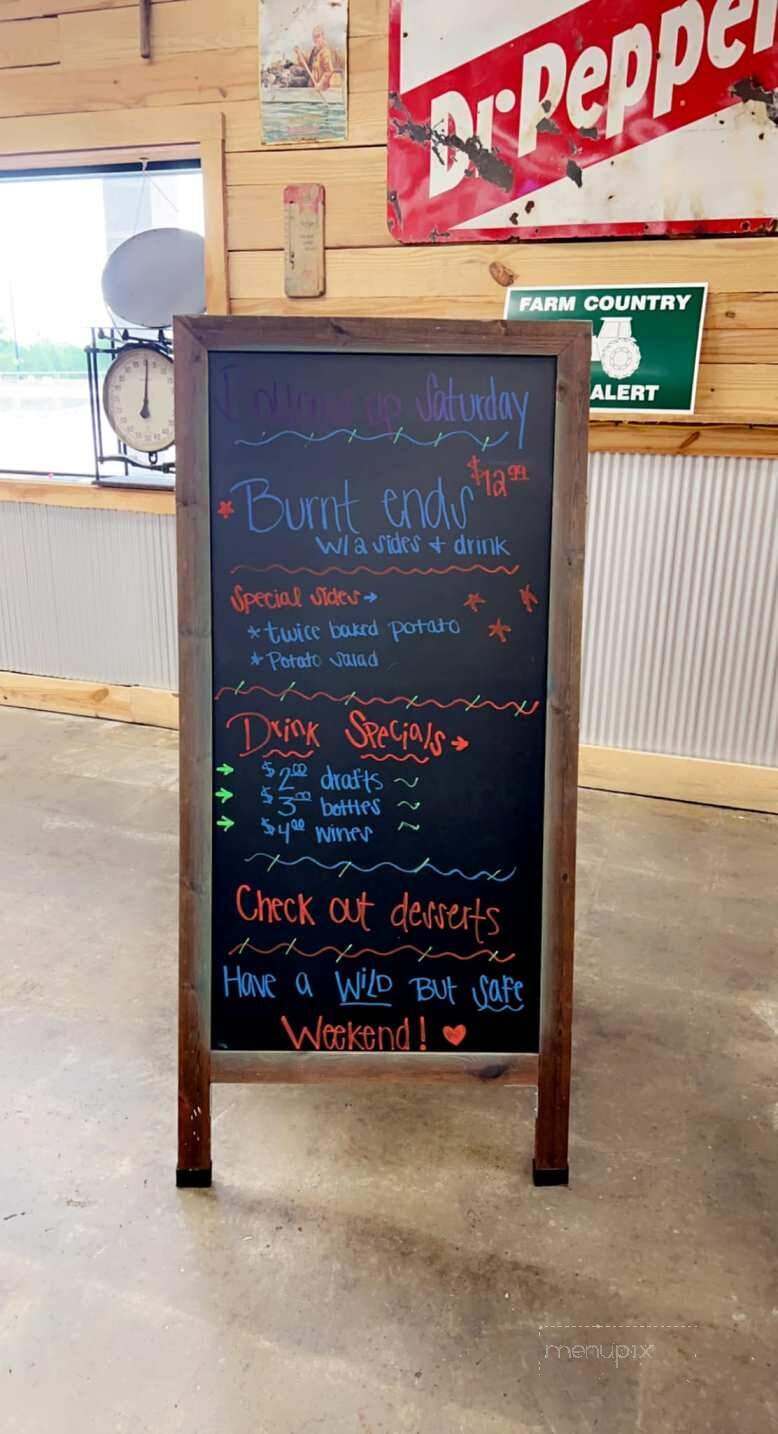 Dr Pepper
FARM COUNTRY
ALERT
up Saturday
Burnt ends $12.99
w/ 2 sides + drink
Special sides →
* twice baked potato
* Potato salad
Drink Specials →
→ $2.00 drafts ~
→ $3.00 bottles ~
→ $4.00 wines ~
Check out desserts
Have a WILD But Safe
Weekend! ♥
menupix